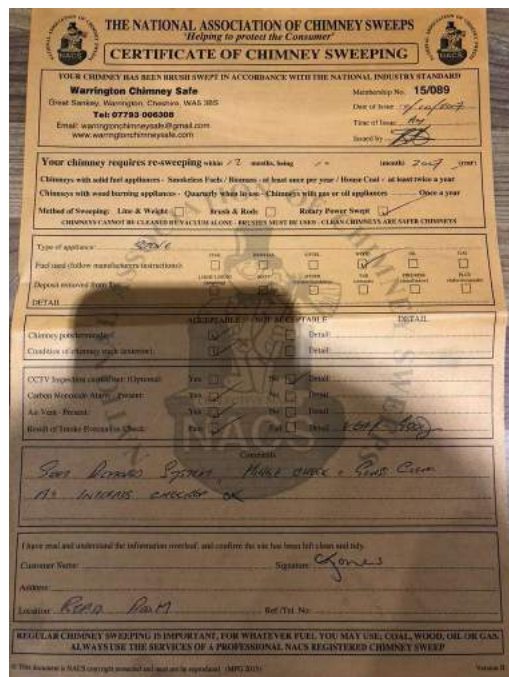 THE NATIONAL ASSOCIATION OF CHIMNEY SWEEPS
'Helping to protect the Consumer'
CERTIFICATE OF CHIMNEY SWEEPING
NACS
NACS
YOUR CHIMNEY HAS BEEN BRUSH SWEPT IN ACCORDANCE WITH THE NATIONAL INDUSTRY STANDARD
Warrington Chimney Safe Membership No. 15/089
Great Sankey, Warrington, Cheshire, WA5 3BS Date of Issue
Tel: 07793 006308 Time of Issue
Email: warringtonchimneysafe@gmail.com Issued by
www.warringtonchimneysafe.com
Your chimney requires re-sweeping within 12 months, being 10 (month) (year)
Chimneys with solid fuel appliances - Smokeless Fuels / Biomass - at least once per year / House Coal - at least twice a year
Chimneys with wood burning appliances - Quarterly when in use - Chimneys with gas or oil appliances Once a year
Method of Sweeping: Line & Weight Brush & Rods Rotary Power Swept
CHIMNEYS CANNOT BE CLEANED BY VACUUM ALONE - BRUSHES MUST BE USED - CLEAN CHIMNEYS ARE SAFER CHIMNEYS
Type of appliance: STOVE
WOOD OIL GAS
Fuel used (follow manufacturers instructions):
SOOT OTHER TAR
Deposit removed from flue:
DETAIL
ACCEPTABLE NOT ACCEPTABLE DETAIL
Chimney pots/terminals: Detail:
Condition of chimney stack (exterior): Detail:
CCTV Inspection carried out: (Optional) Yes No Detail:
Carbon Monoxide Alarm - Present: Yes No Detail:
Air Vent - Present: Yes No Detail:
Result of Smoke Evacuation Check: Pass Fail Detail: VERY GOOD
NACS
Comments
SOOT REMOVED SYSTEM
AS INTERNALS CHECKED OK
I have read and understand the information overleaf, and confirm the site has been left clean and tidy.
Customer Name: Signature: Jones
Address:
Location: ROOM Ref /Tel. No:
REGULAR CHIMNEY SWEEPING IS IMPORTANT, FOR WHATEVER FUEL YOU MAY USE, COAL, WOOD, OIL OR GAS.
ALWAYS USE THE SERVICES OF A PROFESSIONAL NACS REGISTERED CHIMNEY SWEEP
© This document is NACS copyright protected and must not be reproduced. (MPG 2015) Version II